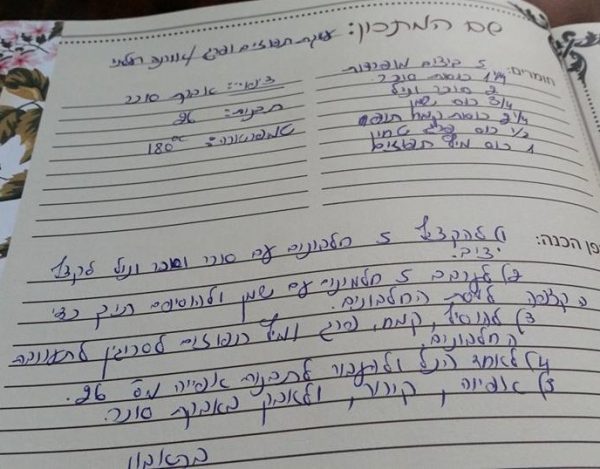 שם המתכון: עוגת תפוזים ופרג /
חומרים: 5 ביצים מופרדות
1¼ כוסות סוכר
2 סוכר וניל
3/4 כוס שמן
2¼ כוסות קמח תופח
1/2 כוס פרג טחון
1 כוס מיץ תפוזים
ציפוי: אבקת סוכר
תבנית: 26
טמפרטורה: 180°c
ופן הכנה: 1) להקציף 5 חלבונים עם סוכר וסוכר וניל לקצף
יציב.
2) לערבב 5 חלמונים עם שמן ולהוסיפם תוך כדי
הקצפה לקצף החלבונים.
3) להוסיף, קמח, פרג ומיץ תפוזים לסרוגין לתערובת
החלבונים.
4) לאחד הכל ולהעביר לתבנית אפייה מס 26.
5) אפיה, קירור, ולאבק באבקת סוכר.
בתאבון